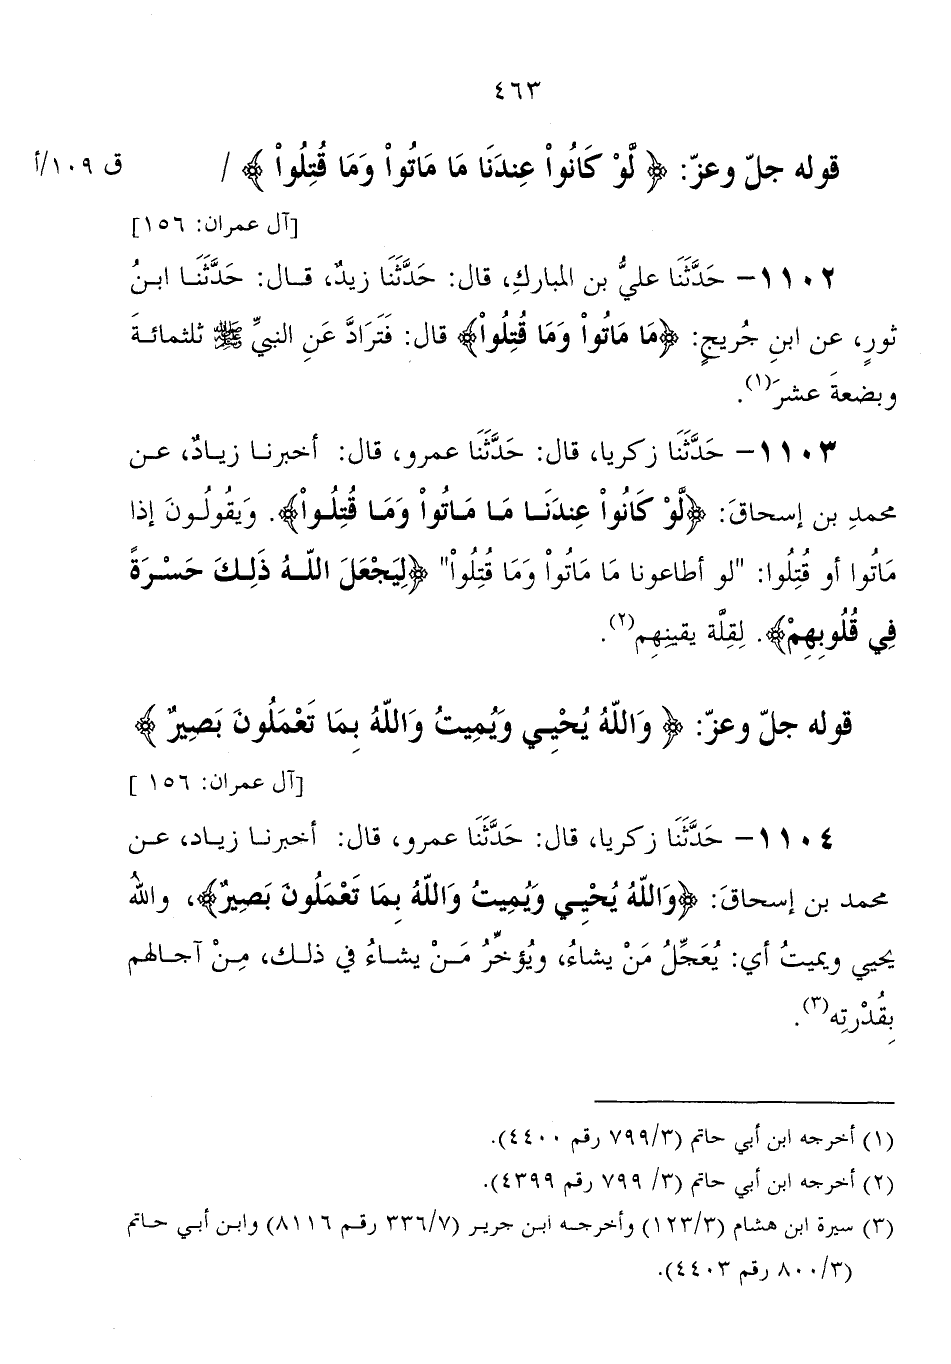 ٤٦٣
قوله جلّ وعزّ: ﴿ لَّوْ كَانُواْ عِندَنَا مَا مَاتُواْ وَمَا قُتِلُواْ ﴾ / ق ١٠٩/أ
[آل عمران: ١٥٦]
١١٠٢- حَدَّثَنَا عليُّ بن المباركِ، قال: حَدَّثَنَا زيدٌ، قال: حَدَّثَنَا ابنُ
ثورٍ، عن ابنِ جُريجٍ: ﴿مَا مَاتُواْ وَمَا قُتِلُواْ﴾ قال: فَتَرَادَّ عَنِ النبيِّ ﷺ ثلثمائةَ
وبضعةَ عشرَ(١).
١١٠٣- حَدَّثَنَا زكريا، قال: حَدَّثَنَا عمرو، قال: أخبرنا زيادٌ، عن
محمدِ بن إسحاقَ: ﴿لَّوْ كَانُواْ عِندَنَا مَا مَاتُواْ وَمَا قُتِلُواْ﴾. وَيَقُولُونَ إذا
مَاتُوا أو قُتِلُوا: "لو أطاعونا مَا مَاتُواْ وَمَا قُتِلُواْ" ﴿لِيَجْعَلَ اللّهُ ذَلِكَ حَسْرَةً
فِي قُلُوبِهِمْ﴾. لِقِلَّة يقينِهِم(٢).
قوله جلّ وعزّ: ﴿ وَاللّهُ يُحْيِي وَيُمِيتُ وَاللّهُ بِمَا تَعْمَلُونَ بَصِيرٌ ﴾
[آل عمران: ١٥٦ ]
١١٠٤- حَدَّثَنَا زكريا، قال: حَدَّثَنَا عمرو، قال: أخبرنا زياد، عن
محمد بن إسحاقَ: ﴿وَاللّهُ يُحْيِي وَيُمِيتُ وَاللّهُ بِمَا تَعْمَلُونَ بَصِيرٌ﴾، واللهُ
يحيي ويميتُ أي: يُعَجِّلُ مَنْ يشاءُ، ويُؤخِّرُ مَنْ يشاءُ في ذلك، مِنْ آجالهم
بِقُدْرتِه(٣).
(١) أخرجه ابن أبي حاتم (٧٩٩/٣ رقم ٤٤٠٠).
(٢) أخرجه ابن أبي حاتم (٣/ ٧٩٩ رقم ٤٣٩٩).
(٣) سيرة ابن هشام (١٢٣/٣) وأخرجه ابن جرير (٣٣٦/٧ رقم ٨١١٦) وابن أبي حاتم
(٨٠٠/٣ رقم ٤٤٠٣).